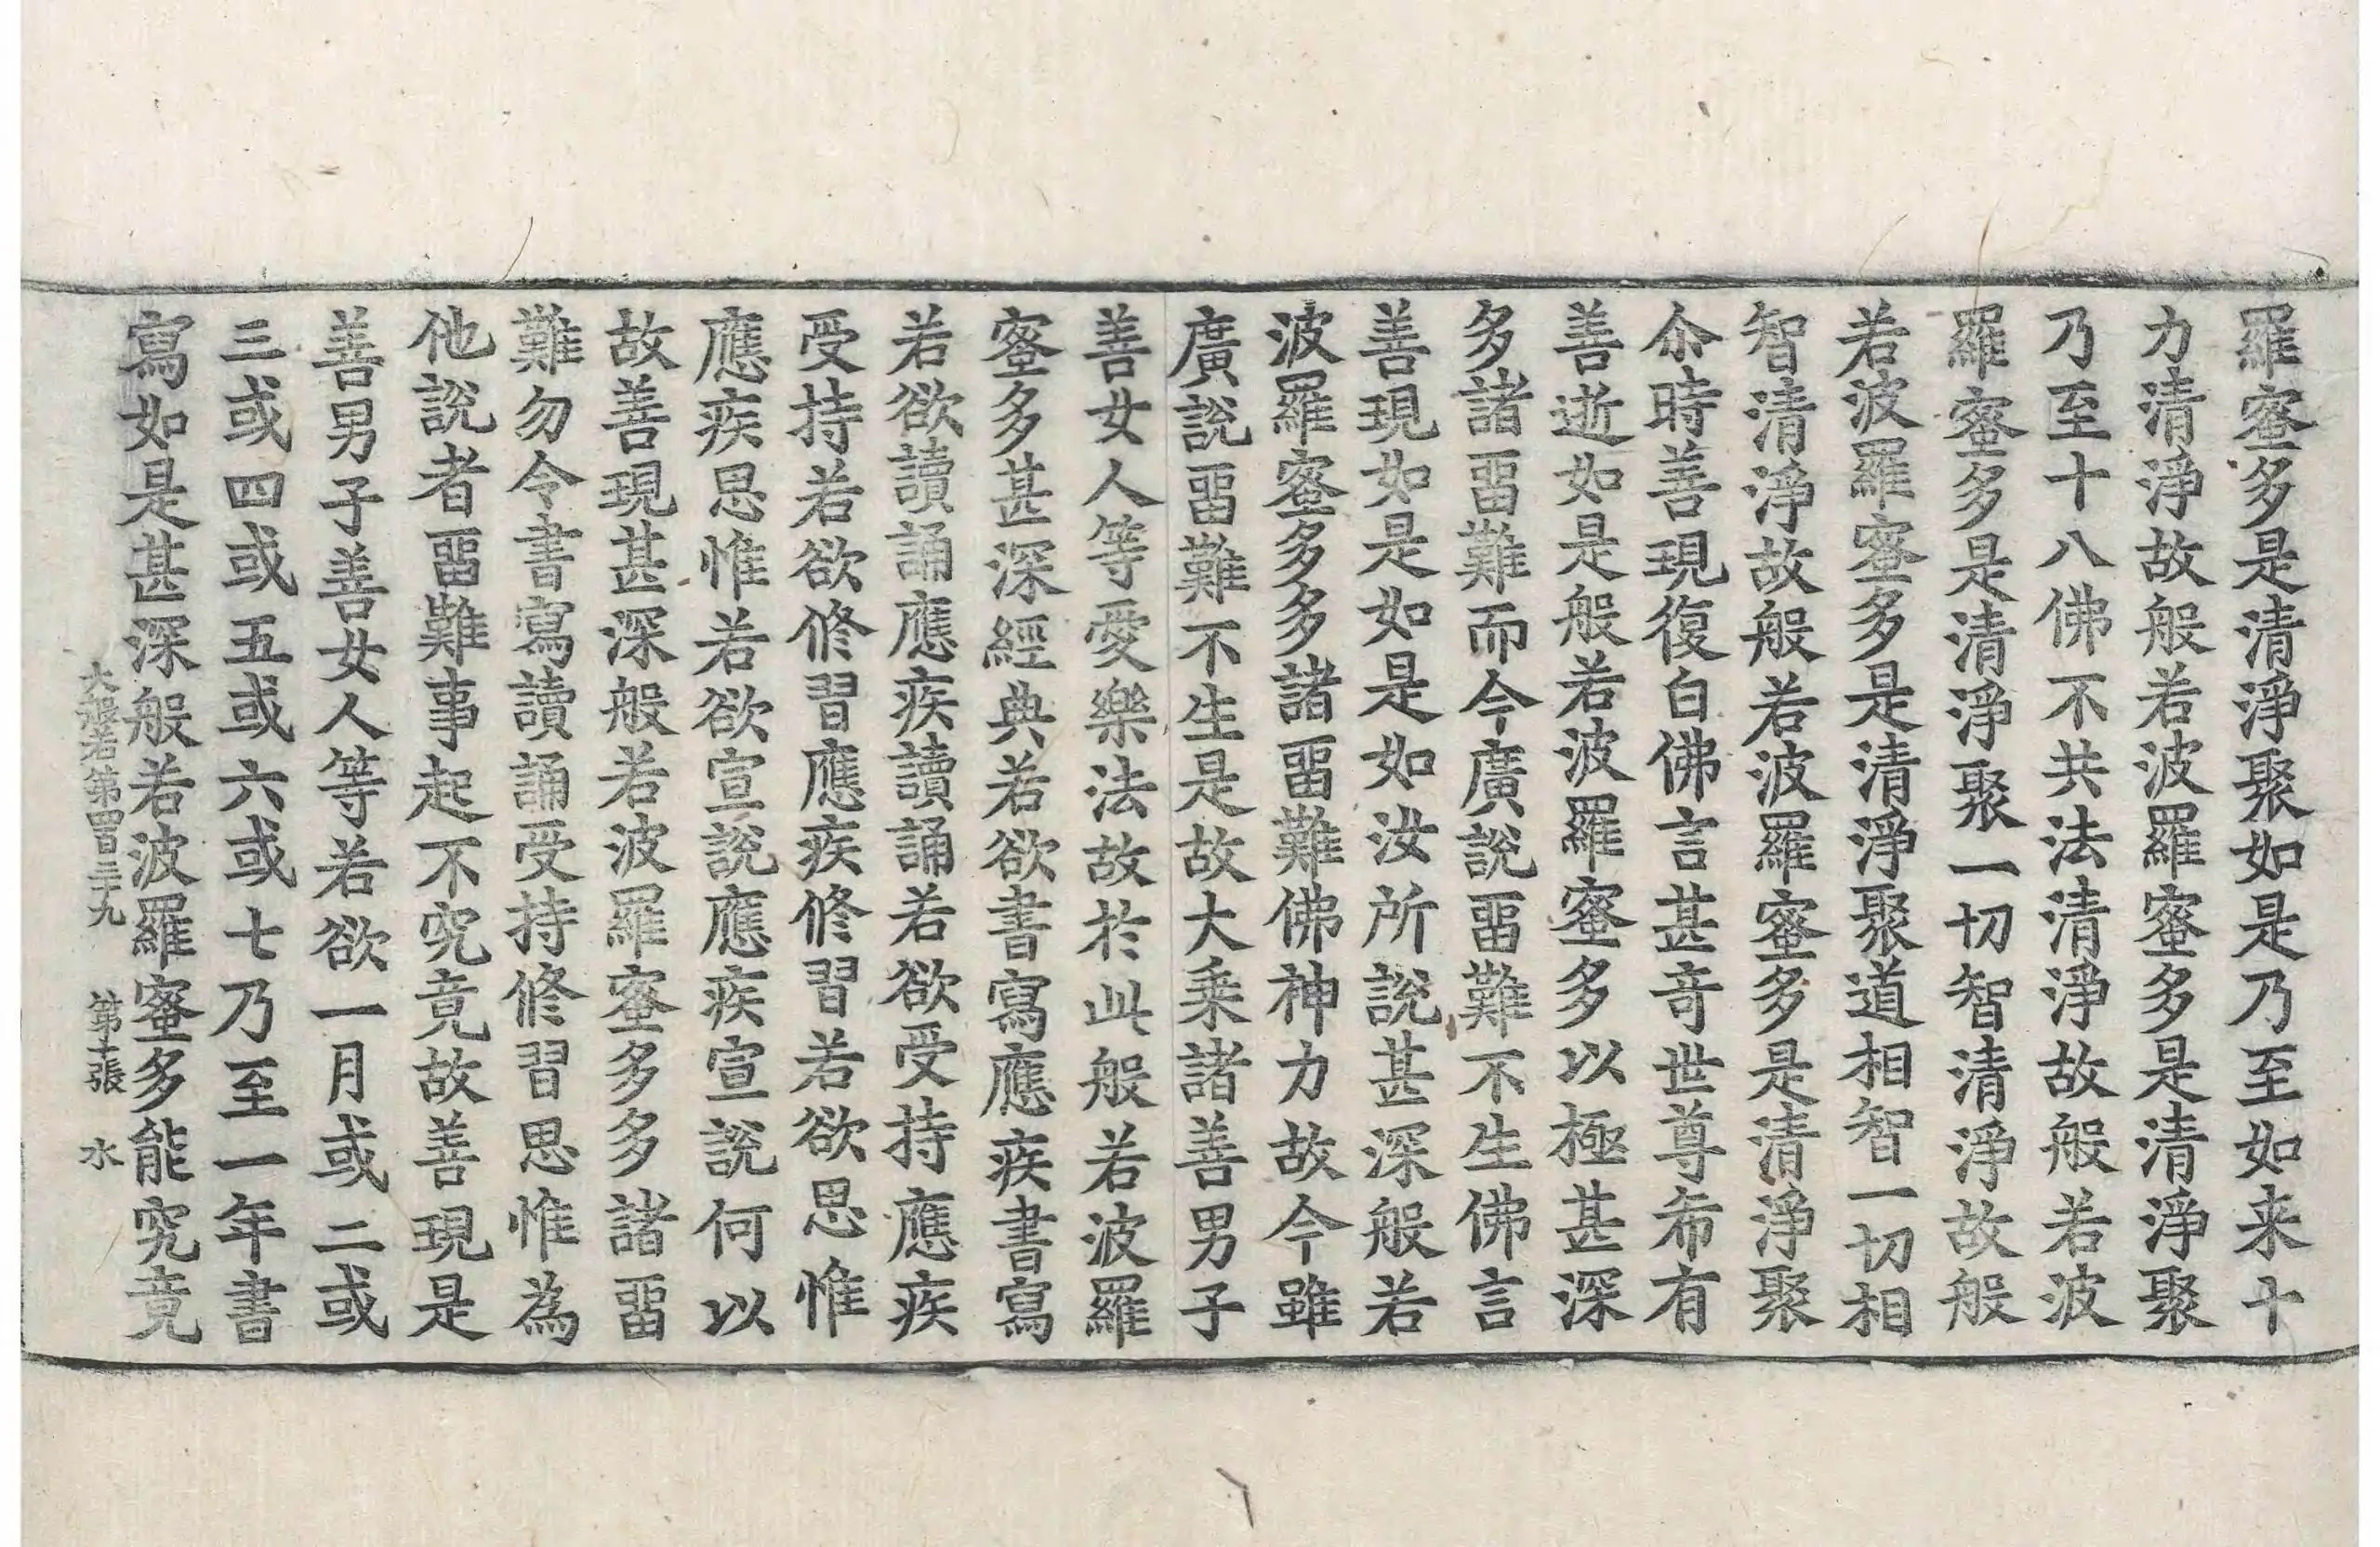 羅蜜多是清淨聚如是乃至如来十
力清淨故般若波羅蜜多是清淨聚
乃至十八佛不共法清淨故般若波
羅蜜多是清淨聚一切智清淨故般
若波羅蜜多是清淨聚道相智一切相
智清淨故般若波羅蜜多是清淨聚
尒時善現復白佛言甚竒世尊希有
善逝如是般若波羅蜜多以極甚深
多諸畱難而今廣說畱難不生佛言
善現如是如是如汝所說甚深般若
波羅蜜多多諸畱難佛神力故今雖
廣說畱難不生是故大乗諸善男子
善女人等愛樂法故於此般若波羅
蜜多甚深經典若欲書寫應疾書寫
若欲讀誦應疾讀誦若欲受持應疾
受持若欲修習應疾修習若欲思惟
應疾思惟若欲宣說應疾宣說何以
故善現甚深般若波羅蜜多多諸畱
難勿令書寫讀誦受持修習思惟為
他說者畱難事起不究竟故善現是
善男子善女人等若欲一月或二或
三或四或五或六或七乃至一年書
寫如是甚深般若波羅蜜多能究竟
大般若第四百三十九 第 張 水